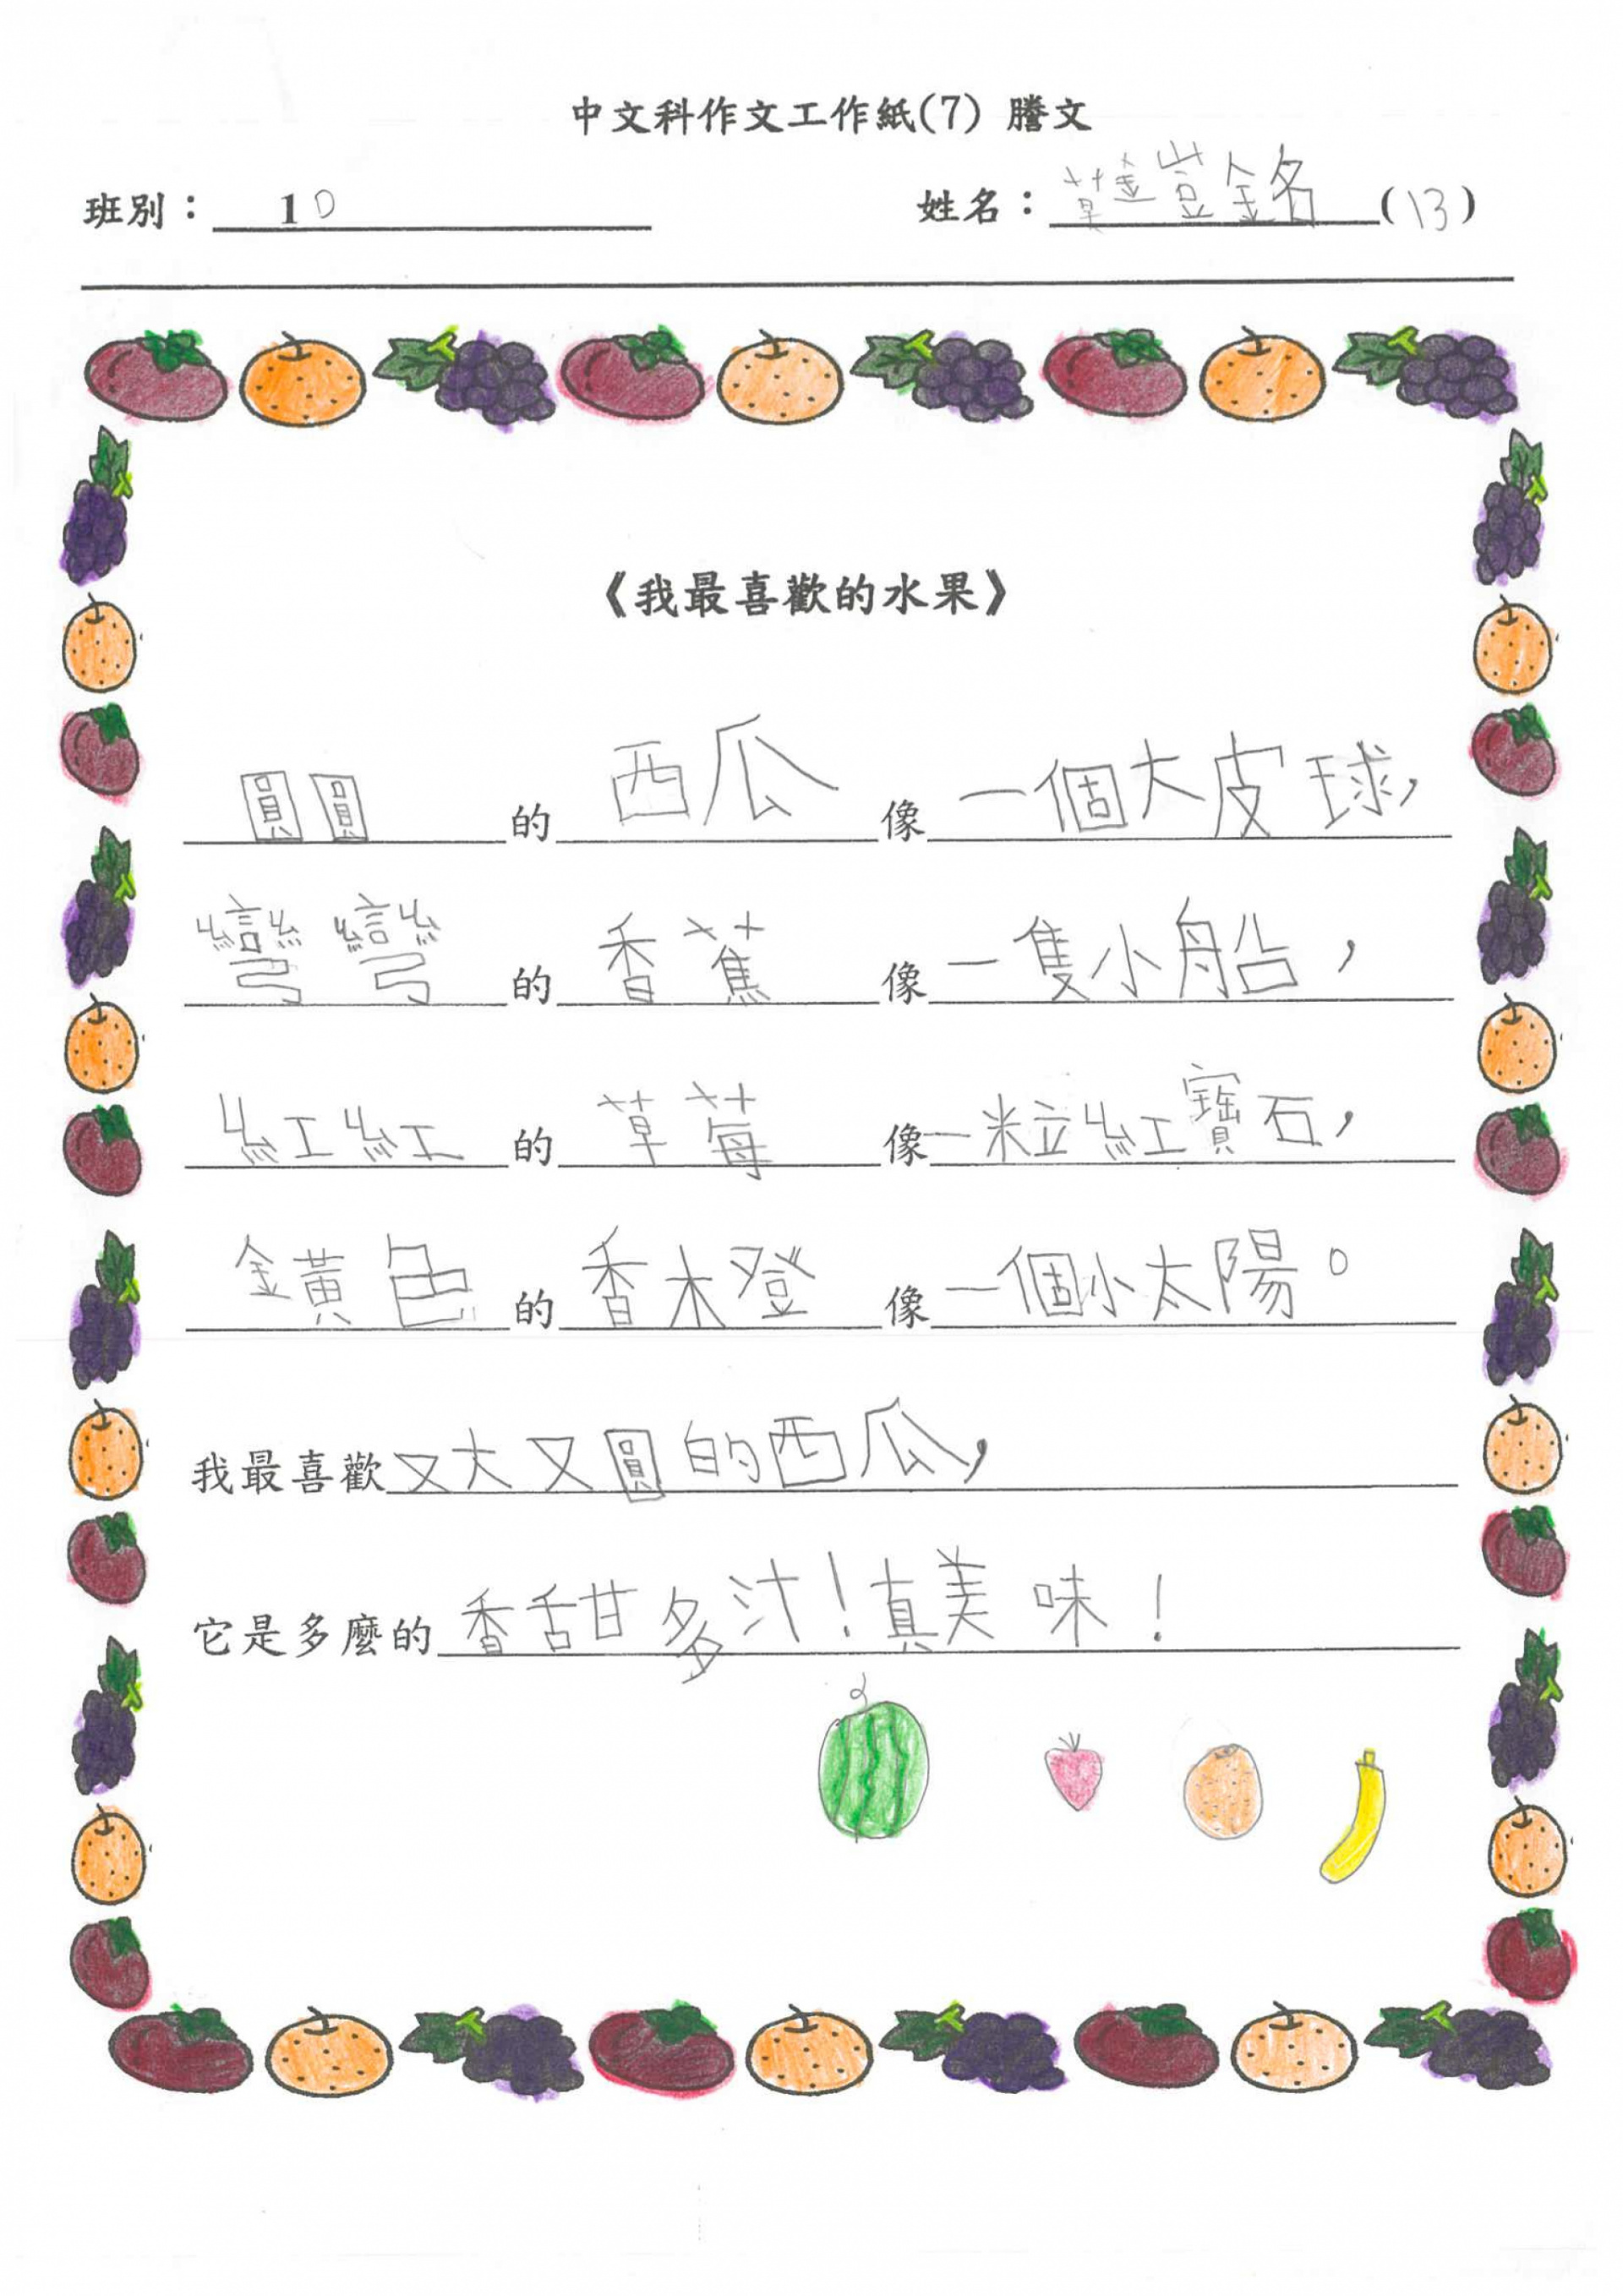 中文科作文工作紙(7) 謄文
班別： 1D 姓名： 銘 (13)
《我最喜歡的水果》
圓圓的西瓜像一個大皮球，
彎彎的香蕉像一隻小船，
紅紅的草莓像一粒紅寶石，
金黃色的香橙像一個小太陽。
我最喜歡又大又圓的西瓜，
它是多麼的香甜多汁！真美味！